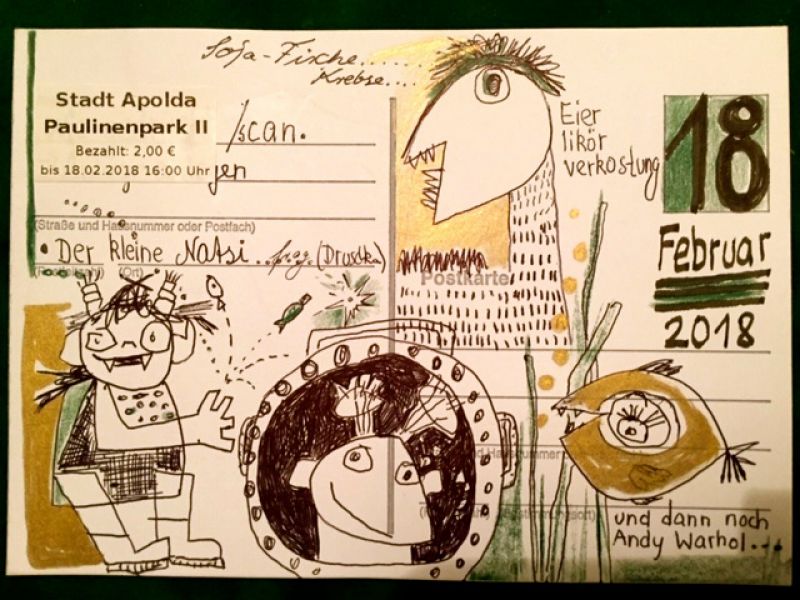 Soja-Fische......
Krebse....
Stadt Apolda
Paulinenpark II
Bezahlt: 2,00 €
bis 18.02.2018 16:00 Uhr
scan.
gen
(Straße und Hausnummer oder Postfach)
• Der kleine Natsi... (Druschka)
(Ort)
Eier
likör
verkostung
18
Februar
2018
Postkarte
und dann noch
Andy Warhol...